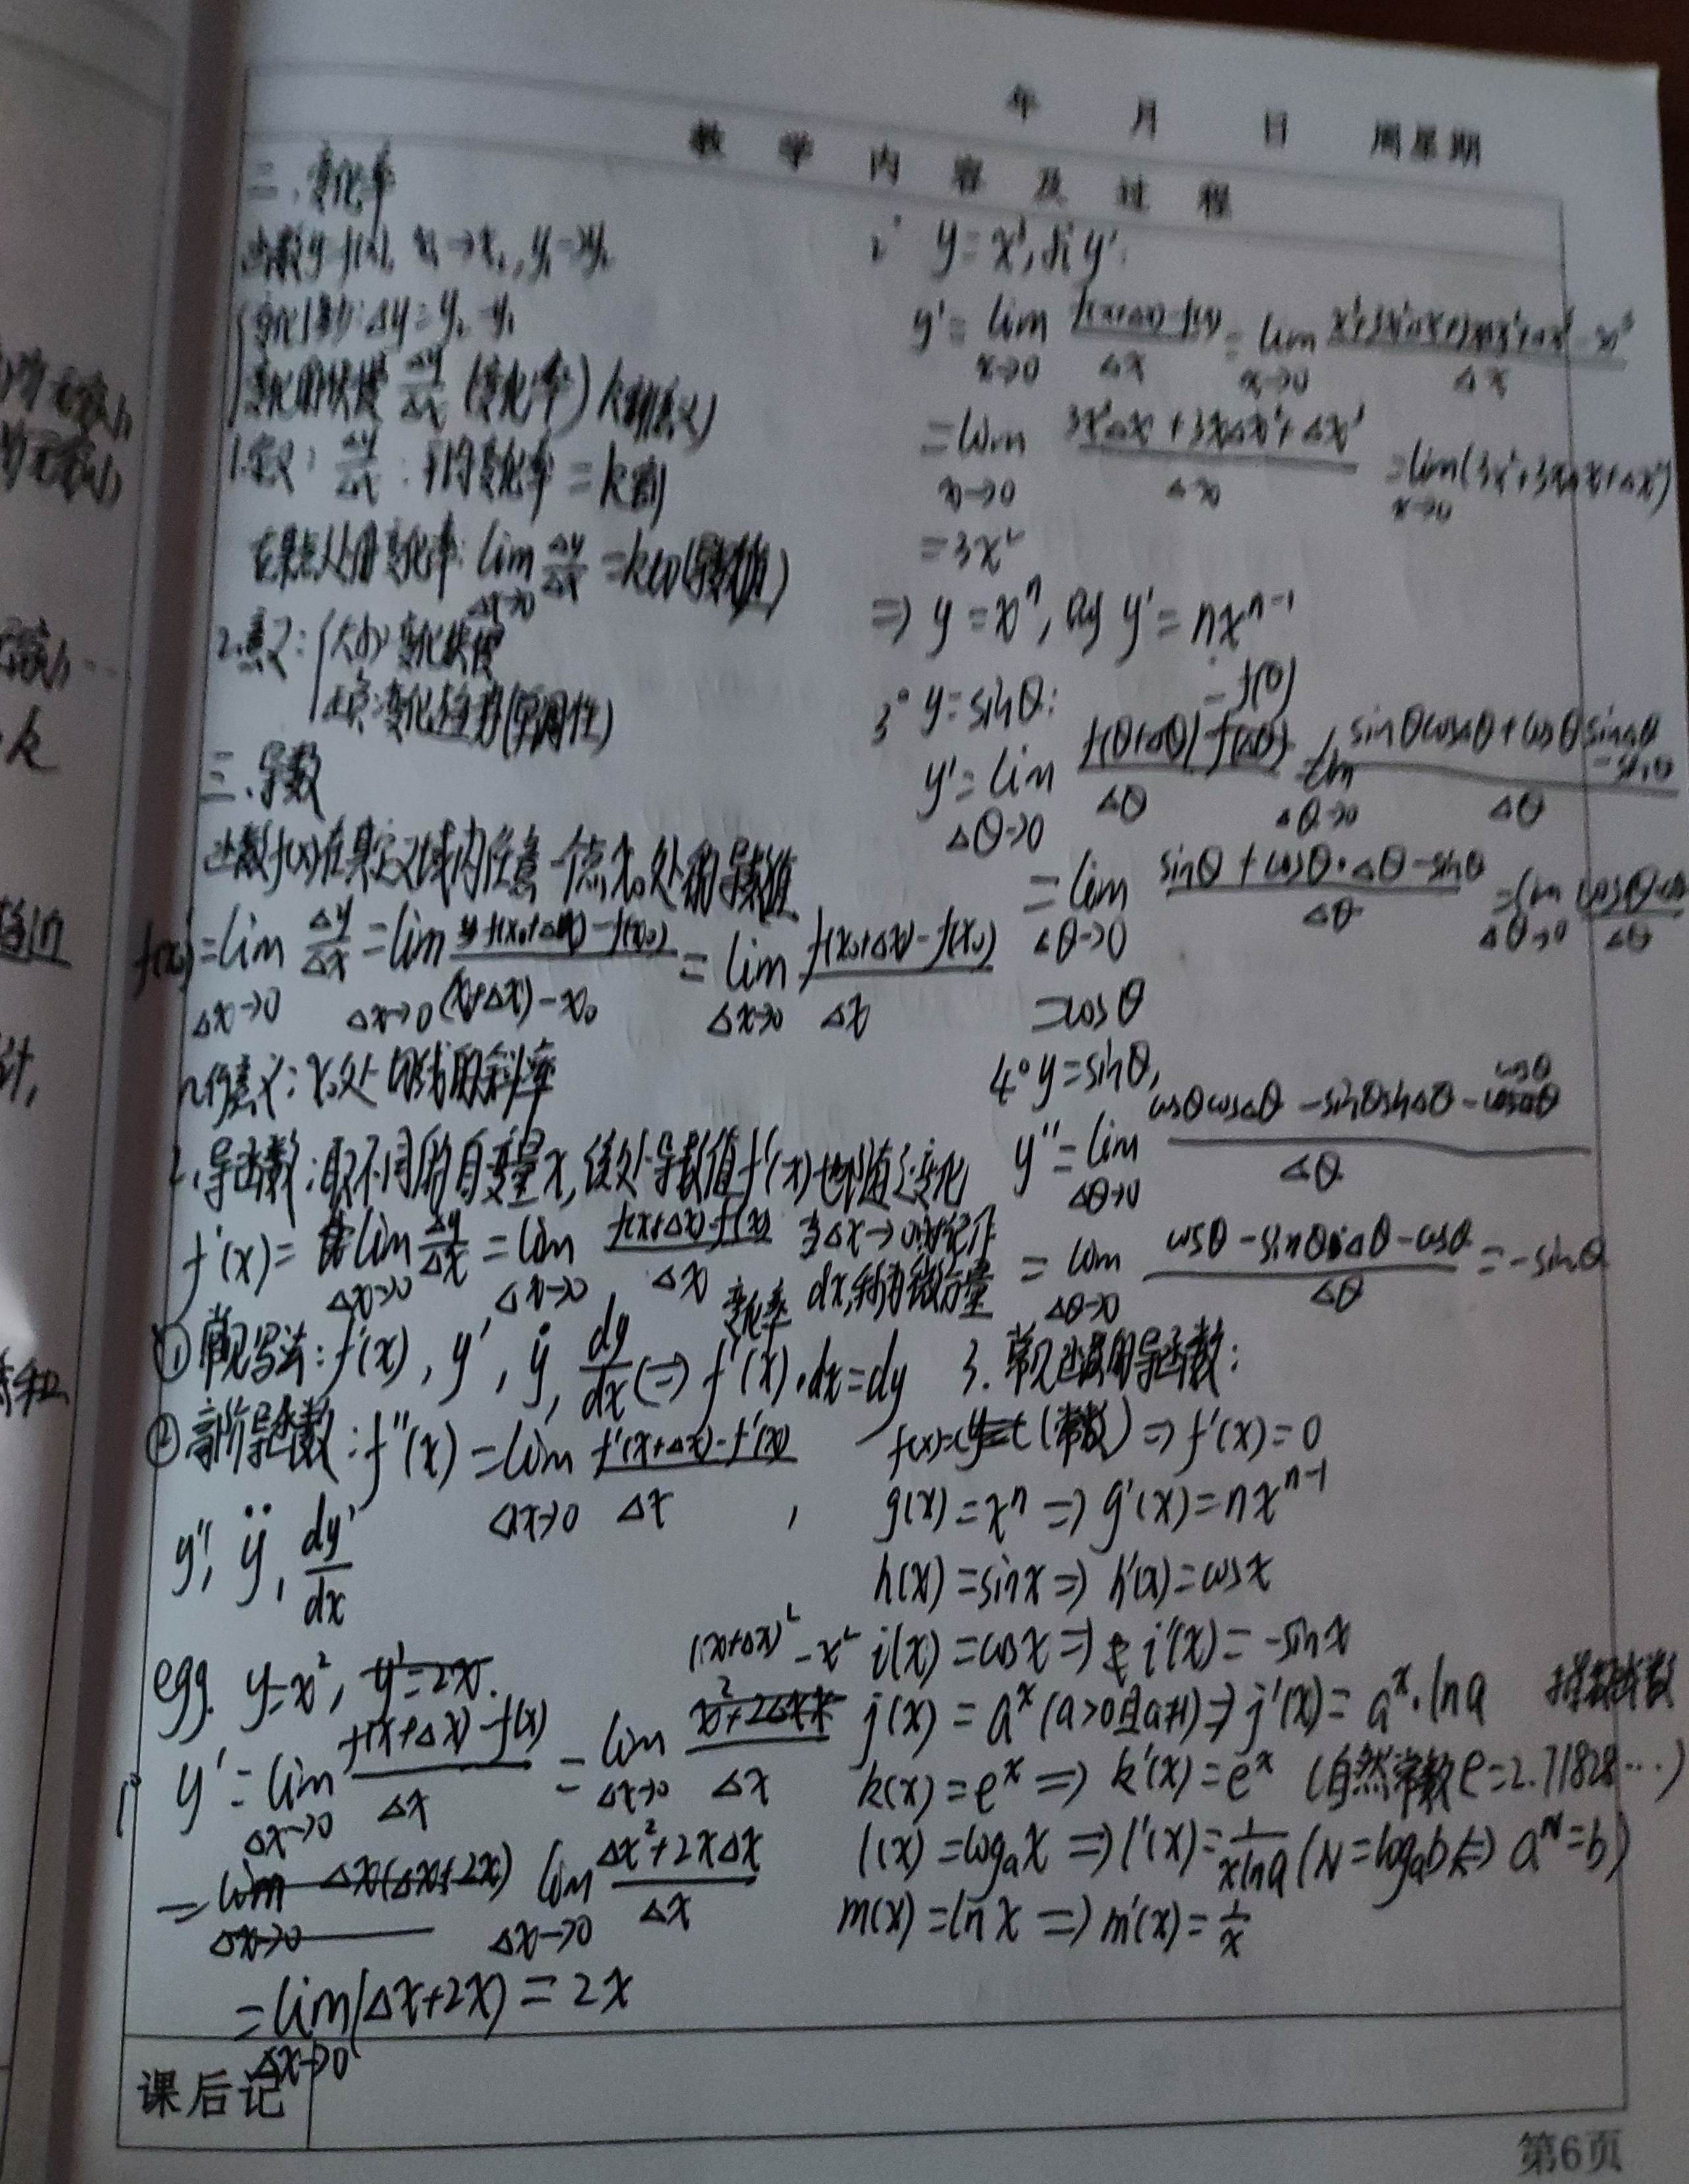 年 月 日 周星期
教 学 内 容 及 过 程
二、变化率
函数y=f(x), x₁→x₂, y₁→y₂
变化多少: Δy=y₂-y₁
变化的快慢 Δy/Δx (变化率) k割(意义)
1.定义: Δy/Δx : 平均变化率 = k割
在某点处的变化率: lim Δx→0 Δy/Δx = k切(导数值)
2.意义: 大小: 变化快慢
正负: 变化趋势(单调性)
三、导数
函数f(x)在其定义域内任意一个点x₀处的导数值
f'(x₀)=lim Δx→0 Δy/Δx = lim Δx→0 f(x₀+Δx)-f(x₀)/(x₀+Δx)-x₀ = lim Δx→0 f(x₀+Δx)-f(x₀)/Δx
意义: x₀处切线的斜率
2.导函数: 取不同的自变量x, 该处导数值f'(x)也随之变化
f'(x)= lim Δx→0 Δy/Δx = lim Δx→0 f(x+Δx)-f(x)/Δx 当Δx→0时记作
变化率 dx, 称为微分量
① 常见写法: f'(x), y', ẏ, dy/dx ⇔ f'(x)·dx=dy
② 高阶导函数: f''(x) = lim Δx→0 f'(x+Δx)-f'(x)/Δx ,
y'', ÿ, dy'/dx
eg. y=x², y'=2x.
(x+Δx)²-x²
1° y'= lim Δx→0 f(x+Δx)-f(x)/Δx = lim Δx→0 x²+2Δx·x/Δx
= lim Δx→0 Δx(Δx+2x) lim Δx→0 Δx²+2xΔx/Δx
= lim Δx→0 (Δx+2x) = 2x
2° y=x³, 求y'.
y'= lim x→0 f(x+Δx)-f(x)/Δx = lim x→0 x³+3x²Δx+3xΔx²+Δx³-x³/Δx
= lim x→0 3x²Δx+3xΔx²+Δx³/Δx = lim x→0 (3x²+3xΔx+Δx²)
=3x²
⇒ y=xⁿ, 则 y'=nxⁿ⁻¹
3° y=sinθ: -f(θ)
y'= lim Δθ→0 f(θ+Δθ)-f(Δθ)/Δθ = lim Δθ→0 sinθcosΔθ+cosθsinΔθ-sinθ/Δθ
= lim Δθ→0 sinθ+cosθ·Δθ-sinθ/Δθ = lim Δθ→0 cosθΔθ/Δθ
=cosθ
4° y=sinθ,
cosθ
y''= lim Δθ→0 cosθcosΔθ-sinθsinΔθ-cosΔθ/Δθ
= lim Δθ→0 cosθ-sinθ·Δθ-cosθ/Δθ = -sinθ
3. 常见函数的导函数:
f(x)=y=C(常数) ⇒ f'(x)=0
g(x)=xⁿ ⇒ g'(x)=nxⁿ⁻¹
h(x)=sinx ⇒ h'(x)=cosx
i(x)=cosx ⇒ i'(x)=-sinx
j(x)=aˣ(a>0且a≠1) ⇒ j'(x)=aˣ·lna
k(x)=eˣ ⇒ k'(x)=eˣ (自然常数e=2.71828…)
l(x)=logₐx ⇒ l'(x)=1/xlna (N=logₐb ⇔ aᴺ=b)
m(x)=lnx ⇒ m'(x)=1/x
课后记
第6页